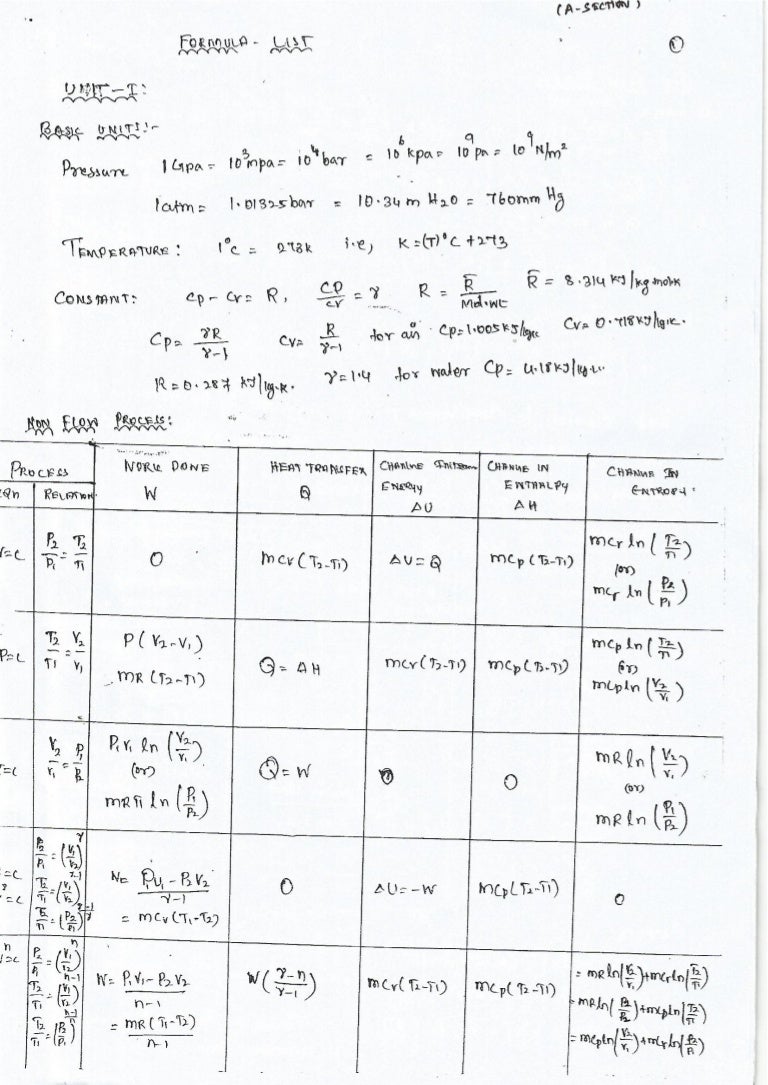 (A-SECTION)
FORMULA - LIST
①
UNIT-I:
BASIC UNITS:-
Pressure 1 Gpa = 10³mpa = 10⁴ bar = 10⁶ kpa = 10⁹ pa = 10⁹ N/m²
1atm = 1.01325bar = 10.34 m H20 = 760mm Hg
TEMPERATURE: 1°C = 273k i.e, K=(T)°C +273
CONSTANT: Cp - Cv = R, CP/CV = γ R = R̄/Mol.wt R̄ = 8.314 KJ/kg molk
Cp = γR/γ-1 Cv = R/γ-1 for air Cp=1.005KJ/kgk Cv=0.718KJ/kg.k.
R=0.287 KJ/kg.k. γ=1.4 for water Cp= 4.18KJ/kg.k.
NON FLOW PROCESS:
PROCESS
RELATION
WORK DONE W
HEAT TRANSFER Q
CHANGE INTERN ENERGY ΔU
CHANGE IN ENTHALPY ΔH
CHANGE IN ENTROPY.
V=C P₂/P₁ = T₂/T₁ 0 mcv(T₂-T₁) ΔU=Q mcp(T₂-T₁) mcv ln(T₂/T₁)
(or)
mcv ln(P₂/P₁)
P=C T₂/T₁ = V₂/V₁ P(V₂-V₁) Q=ΔH mcv(T₂-T₁) mcp(T₂-T₁) mcp ln(T₂/T₁)
mR(T₂-T₁) (or)
mcp ln(V₂/V₁)
T=C V₂/V₁ = P₁/P₂ P₁V₁ ln(V₂/V₁) Q=W 0 0 mR ln(V₂/V₁)
(or) (or)
mRT₁ ln(P₁/P₂) mR ln(P₁/P₂)
P₂/P₁ = (V₁/V₂)^γ
T₂/T₁ = (V₁/V₂)^γ-1 W= P₁V₁-P₂V₂/γ-1 0 ΔU=-W mcp(T₂-T₁) 0
T₂/T₁ = (P₂/P₁)^γ-1/γ = mcv(T₁-T₂)
P₂/P₁ = (V₁/V₂)^n W= P₁V₁-P₂V₂/n-1 W(γ-n/γ-1) mcv(T₂-T₁) mcp(T₂-T₁) = mR ln(V₂/V₁)+mcv ln(T₂/T₁)
T₂/T₁ = (V₁/V₂)^n-1 = mR(T₁-T₂)/n-1 = mR ln(P₁/P₂)+mcp ln(T₂/T₁)
T₂/T₁ = (P₂/P₁)^n-1/n = mcp ln(V₂/V₁)+mcv ln(P₂/P₁)